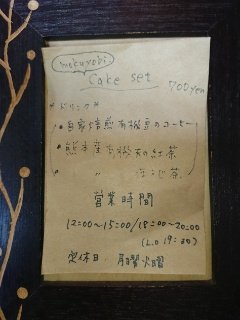 mokuyobi
Cake set
700yen
*ドリンク*
・自家焙煎有機豆のコーヒー
・熊本産有機天の紅茶
・ 〃 ほうじ茶
営業時間
12:00~15:00/18:00~20:00
(L.O 19:30)
定休日・月曜火曜